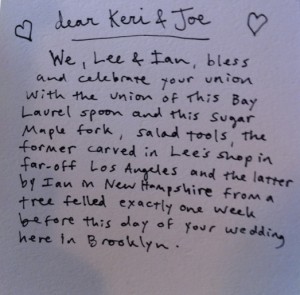 dear Keri & Joe
We, Lee & Ian, bless
and celebrate your union
with the union of This Bay
Laurel spoon and this Sugar
Maple fork, salad tools, the
former carved in Lee's shop in
far-off Los Angeles and the latter
by Ian in New Hampshire from a
tree felled exactly one week
before this day of your wedding
here in Brooklyn.